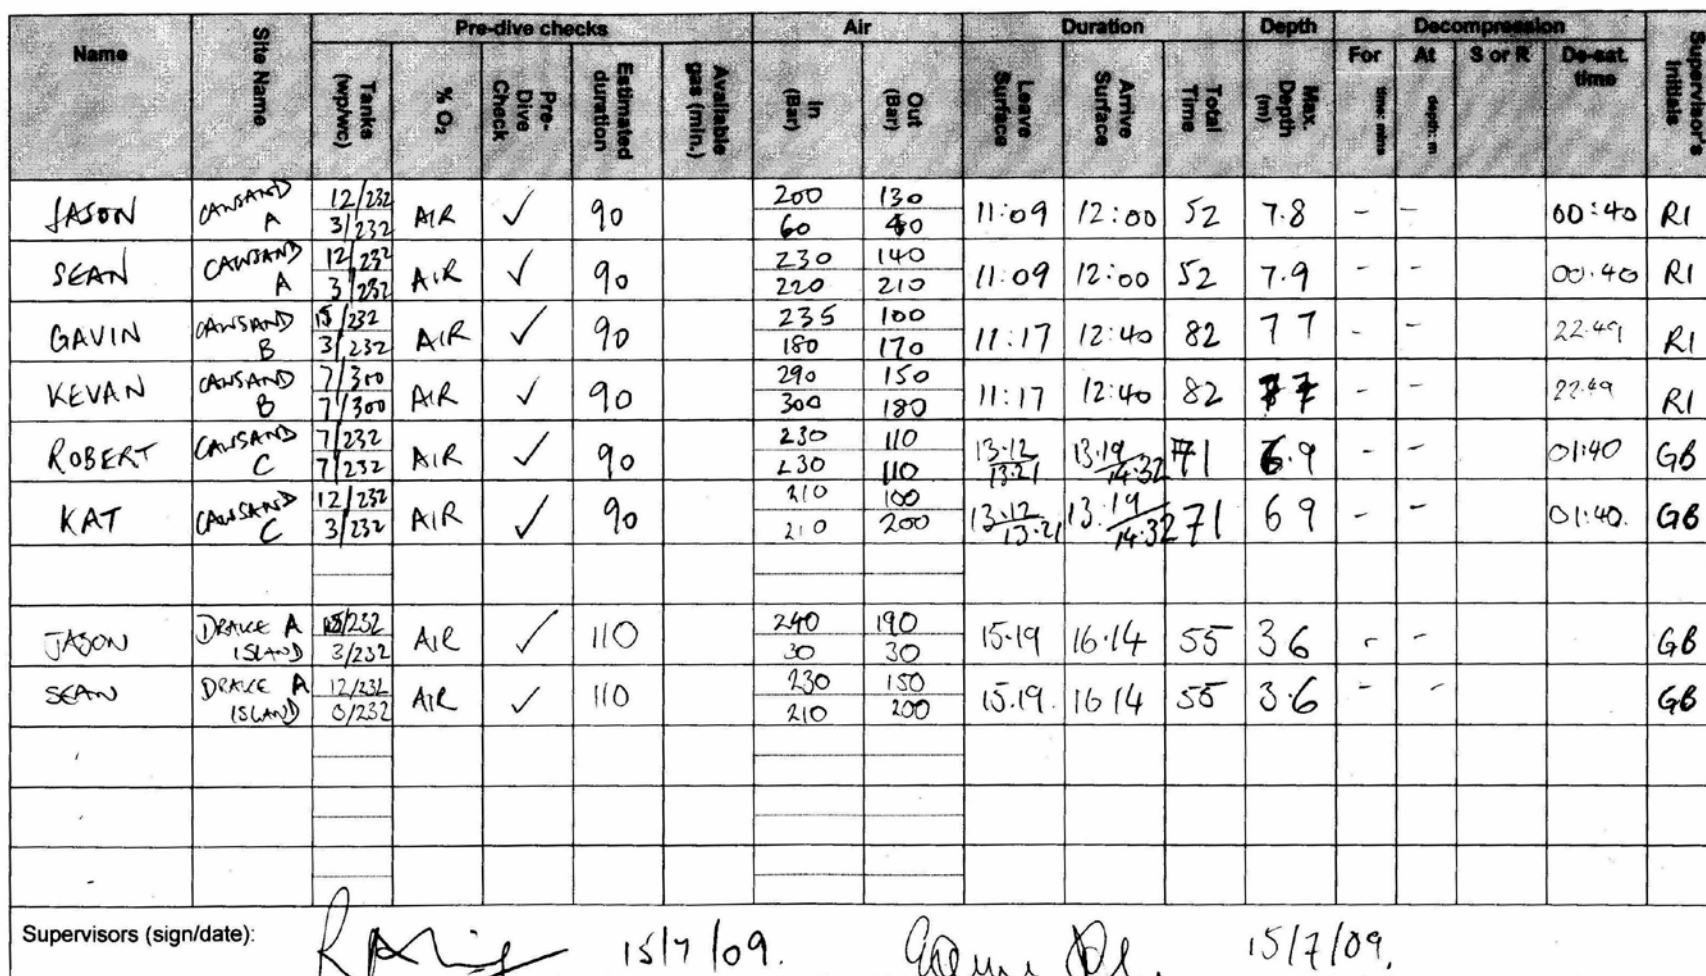 Name Site Name Pre-dive checks Air Duration Depth Decompression Supervisor's Initials
Tanks (wp/wc) % O2 Pre-Dive Check Estimated duration Available gas (min.) In (Bar) Out (Bar) Leave Surface Arrive Surface Total Time Max. Depth (m) For time: mins At depth: m S or R De-sat. time
JASON CAWSAND A 12/232 3/232 AIR ✓ 90 200 60 130 40 11:09 12:00 52 7.8 - - 00:40 RI
SEAN CAWSAND A 12/232 3/232 AIR ✓ 90 230 220 140 210 11:09 12:00 52 7.9 - - 00.40 RI
GAVIN CAWSAND B 15/232 3/232 AIR ✓ 90 235 180 100 170 11:17 12:40 82 7 7 - - 22.49 RI
KEVAN CAWSAND B 7/300 7/300 AIR ✓ 90 290 300 150 180 11:17 12:40 82 7 7 - - 22.49 RI
ROBERT CAWSAND C 7/232 7/232 AIR ✓ 90 230 230 110 110 13.12/13.21 13.19/14:32 71 6.9 - - 01:40 GB
KAT CAWSAND C 12/232 3/232 AIR ✓ 90 210 210 100 200 13.12/13.21 13.19/14:32 71 6 9 - - 01:40. GB
JASON DRAKE A ISLAND 15/232 3/232 AIR ✓ 110 240 30 190 30 15.19 16.14 55 3 6 - - GB
SEAN DRAKE A ISLAND 12/232 0/232 AIR ✓ 110 230 210 150 200 15.19. 16 14 55 3.6 - - GB
Supervisors (sign/date): 15/7/09. 15/7/09.